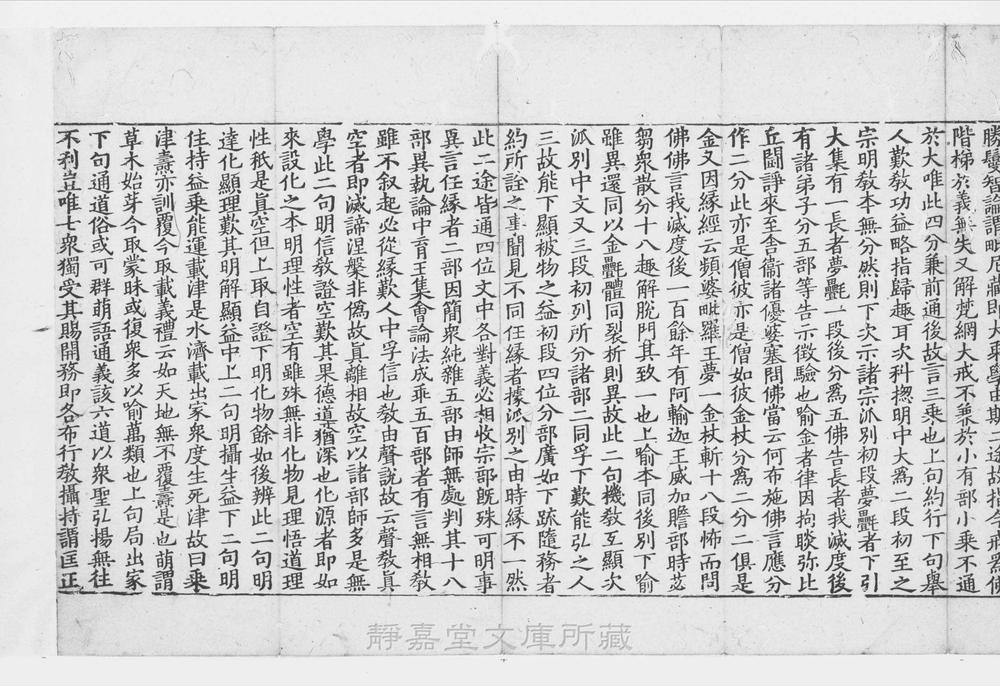 勝鬘智論謂畋尼藏即大乘學由斯二途故指今戒為佛
階梯於義無失又解梵網大戒不兼於小有部小乘不通
於大唯此四分兼前通後故言三乘也上句約行下句舉
人歎教功益略指歸趣耳次科揔明中大為二段初至之
宗明教本無分然則下次示諸宗派別初段夢㲲者下引
大集有一長者夢㲲一段後分為五佛告長者我滅度後
有諸弟子分五部等告示徵驗也喻金者律因拘睒弥比
丘鬪諍來至舍衞諸優婆塞問佛當云何布施佛言應分
作二分此亦是僧彼亦是僧如彼金杖分為二分二俱是
金又因緣經云頻婆毗羅王夢一金杖斬十八段怖而問
佛佛言我滅度後一百餘年有阿輸迦王威加贍部時苾
芻衆散分十八趣解脫門其致一也上喻本同後別下喻
雖異還同以金㲲體同裂析則異故此二句機教互顯次
派別中文又三段初列所分諸部二同孚下歎能弘之人
三故能下顯被物之益初段四位分部廣如下䟽隨務者
約所詮之事聞見不同任緣者據派別之由時緣不一然
此二途皆通四位文中各對義必相收宗部旣殊可明事
異言任緣者二部因簡衆純雜五部由師無處判其十八
部異執論中育王集僧論法成乖五百部者有言無相教
雖不叙起必從緣歎人中孚信也教由聲說故云聲教真
空者即滅諦涅槃非偽故真離相故空以諸部師多是無
學此二句明信教證空歎其果德道猶深也化源者即如
來設化之本明理性者空有雖殊無非化物見理悟道理
性秖是真空但上取自證下明化物餘如後辨此二句明
達化顯理歎其明解顯益中上二句明攝生益下二句明
住持益乘能運載津是水濟載出家衆度生死津故曰乘
津燾亦訓覆今取載義禮云如天地無不覆燾是也萌謂
草木始芽今取蒙昧或復衆多以喻萬類也上句局出家
下句通道俗或可群萌語通義該六道以衆聖弘揚無往
不利豈唯七衆獨受其賜開務即各布行教攝持謂匡正
靜嘉堂文庫所藏